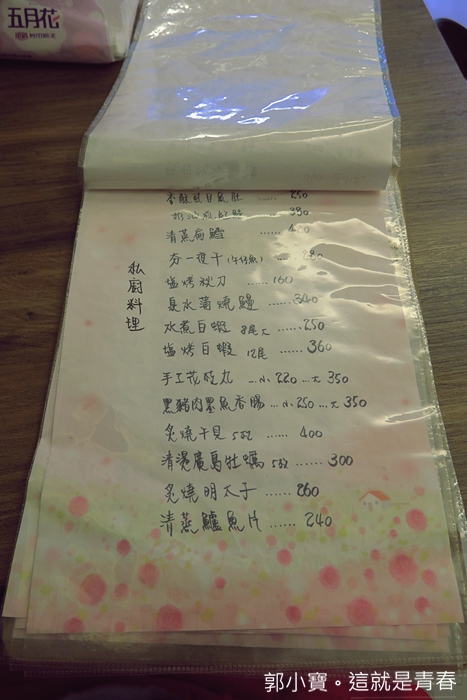 五月花
私廚料理
香酥虱目魚肚 ...... 250
奶油 ...... 390
清蒸 鱈 ......
夯一夜干(午仔魚) ... 280
塩烤秋刀 ...... 160
臭水蒲燒鰻 ...... 340
水煮白蝦 8尾大 ...... 250
塩烤白蝦 12尾 ...... 360
手工花枝丸 ...小 220 ...大 350
黑豬肉墨魚香腸 ...小 250 ...大 350
炙燒干貝 5粒 ... 400
清燙廣島牡蠣 5粒 ...... 300
炙燒明太子 ...... 260
清蒸鱸魚片 ...... 240
郭小寶。這就是青春